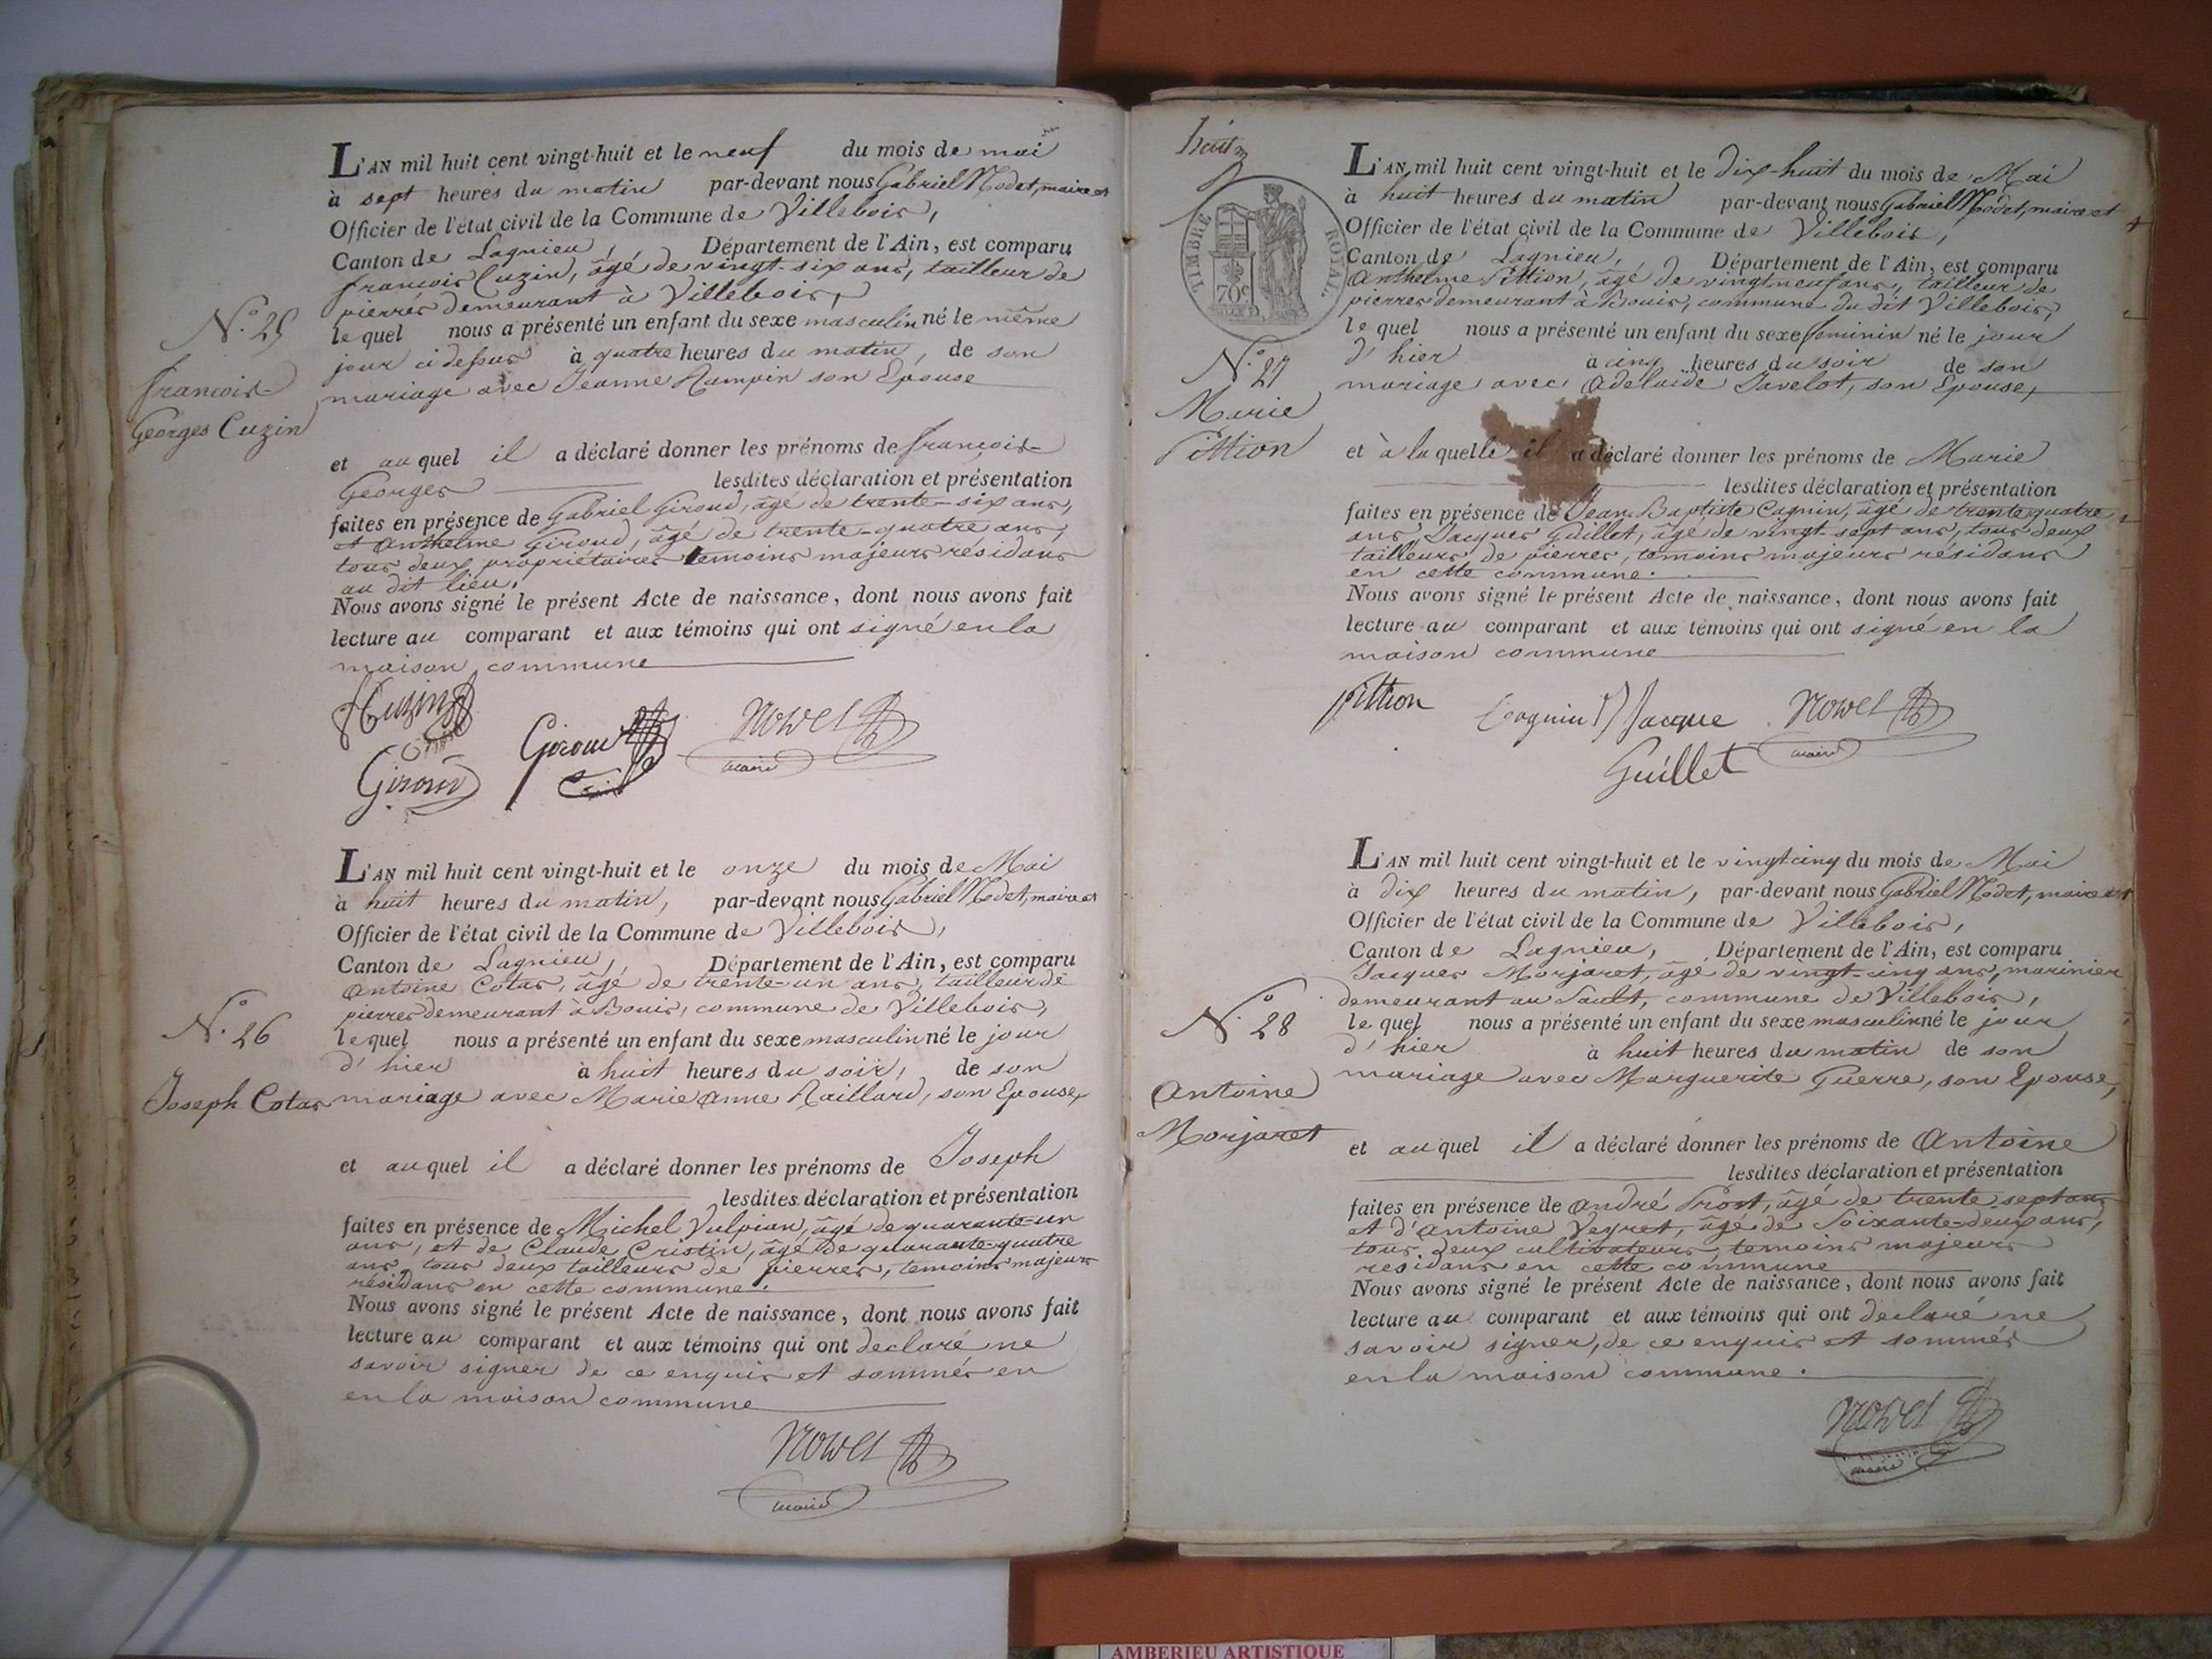 L'AN mil huit cent vingt-huit et le neuf du mois de mai
à sept heures du matin par-devant nous Gabriel Nodet, maire et
Officier de l'état civil de la Commune de Villebois,
Canton de Lagnieu, Département de l'Ain, est comparu
francois Cuzin, âgé de vingt-six ans, tailleur de
pierres demeurant à Villebois,
N.° 25
le quel nous a présenté un enfant du sexe masculin né le même
jour ci dessus à quatre heures du matin, de son
francois
mariage avec Jeanne Rampin son Epouse
Georges Cuzin
et au quel il a déclaré donner les prénoms de francois
Georges lesdites déclaration et présentation
faites en présence de Gabriel Giroud, âgé de trente-six ans,
et Anthelme Giroud, âgé de trente-quatre ans,
tous deux propriétaires temoins majeurs résidans
au dit lieu.
Nous avons signé le présent Acte de naissance, dont nous avons fait
lecture au comparant et aux témoins qui ont signé en la
maison commune
Cuzin
Giroud Giroud Nodet
maire
L'AN mil huit cent vingt-huit et le onze du mois de Mai
à huit heures du matin, par-devant nous Gabriel Nodet, maire et
Officier de l'état civil de la Commune de Villebois,
Canton de Lagnieu, Département de l'Ain, est comparu
Antoine Cotas, âgé de trente-un ans, tailleur de
pierres demeurant à Bouis, commune de Villebois,
N.° 26
le quel nous a présenté un enfant du sexe masculin né le jour
d'hier à huit heures du soir, de son
Joseph Cotas
mariage avec Marie Anne Raillard, son Epouse,
et au quel il a déclaré donner les prénoms de Joseph
lesdites déclaration et présentation
faites en présence de Michel Vulpian, âgé de quarante-un
ans, et de Claude Cristin, âgé de quarante-quatre
ans, tous deux tailleurs de pierres, temoins majeurs
résidans en cette commune.
Nous avons signé le présent Acte de naissance, dont nous avons fait
lecture au comparant et aux témoins qui ont declaré ne
savoir signer de ce enquis et sommés en
en la maison commune
Nodet
maire
huit
TIMBRE ROYAL.
70c
L'AN mil huit cent vingt-huit et le dix-huit du mois de Mai
à huit heures du matin par-devant nous Gabriel Nodet, maire et
Officier de l'état civil de la Commune de Villebois,
Canton de Lagnieu, Département de l'Ain, est comparu
Anthelme Pittion, âgé de vingt neuf ans, tailleur de
pierres demeurant à Bouis, commune du dit Villebois,
le quel nous a présenté un enfant du sexe feminin né le jour
N.° 27
d'hier à cinq heures du soir de son
mariage avec Adelaide Javelot, son Epouse,
Marie
Pittion
et à la quelle il a déclaré donner les prénoms de Marie
lesdites déclaration et présentation
faites en présence de Jean Baptiste Cagnin, âgé de trente quatre
ans, Jacques Guillet, âgé de vingt-sept ans, tous deux
tailleurs de pierres, temoins majeurs résidans
en cette commune.
Nous avons signé le présent Acte de naissance, dont nous avons fait
lecture au comparant et aux témoins qui ont signé en la
maison commune
pittion Cagnin Jacque Nodet
Guillet maire
L'AN mil huit cent vingt-huit et le vingt cinq du mois de Mai
à dix heures du matin, par-devant nous Gabriel Nodet, maire et
Officier de l'état civil de la Commune de Villebois,
Canton de Lagnieu, Département de l'Ain, est comparu
Jacques Morjaret, âgé de vingt-cinq ans, marinier
demeurant au Sault, commune de Villebois,
N.° 28
le quel nous a présenté un enfant du sexe masculin né le jour
d'hier à huit heures du matin de son
mariage avec Marguerite Guerre, son Epouse,
Antoine
Morjaret
et au quel il a déclaré donner les prénoms de Antoine
lesdites déclaration et présentation
faites en présence de André Prost, âgé de trente sept ans
et d'Antoine Veyret, âgé de Soixante-deux ans,
tous deux cultivateurs temoins majeurs
residans en cette commune
Nous avons signé le présent Acte de naissance, dont nous avons fait
lecture au comparant et aux témoins qui ont declaré ne
savoir signer, de ce enquis et sommés
en la maison commune.
Nodet
maire
AMBERIEU ARTISTIQUE